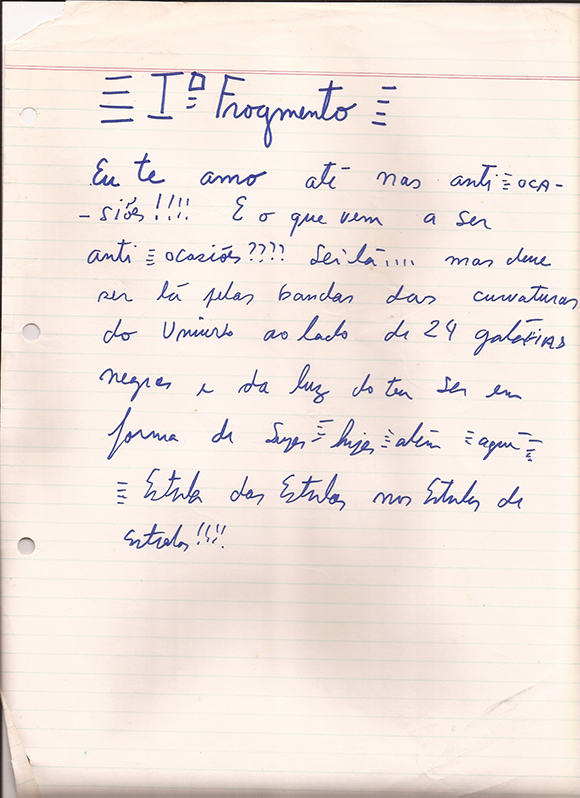 ≡ Iº Fragmento ≡
Eu te amo até nas anti≡oca-
-siões!!!! E o que vem a ser
anti≡ocasiões???? Sei lá.... mas deve
ser lá pelas bandas das curvaturas
do Universo ao lado de 24 galáxias
negras e da luz do teu ser em
forma de ≡ ≡ além ≡ aqui ≡
≡ Estrela das Estrelas nas Estrelas de
estrelas!!!!